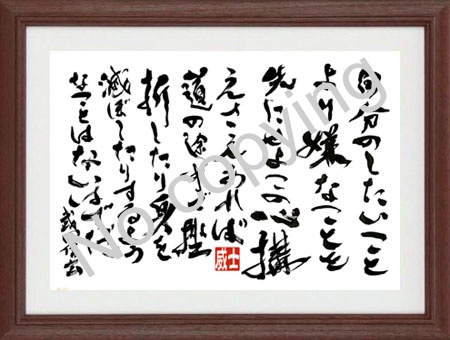 自分のしたいこと
より嫌なことを
先にせよこの心構
えさえあれば
道の途中で挫
折したり身を
滅ぼしたりするよう
なことはないはずだ 武田信玄
No copying